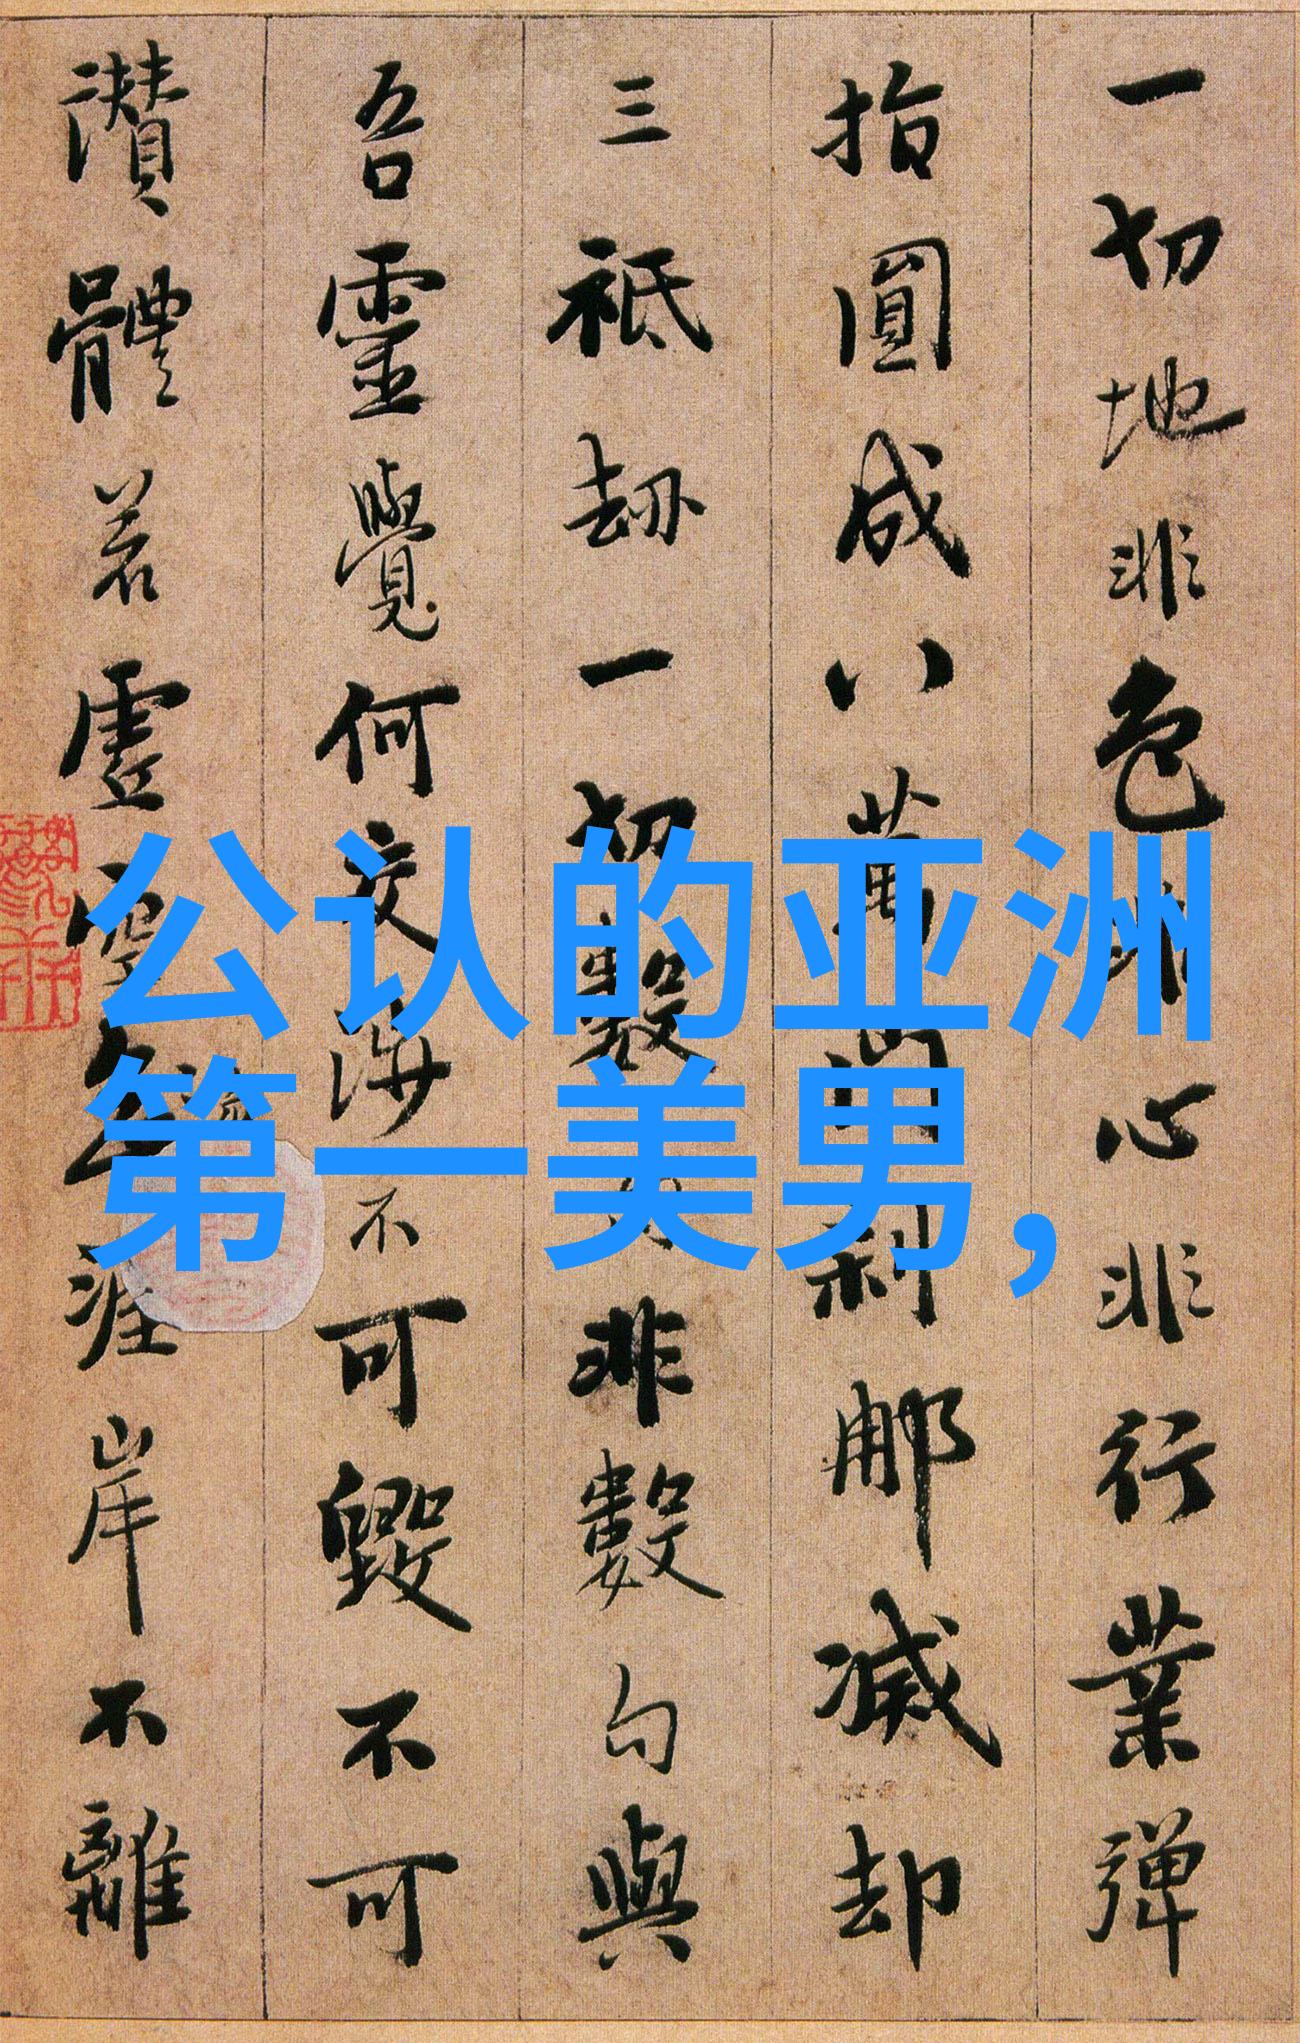 公认的亚洲
第一美男，
一切地非色非心非行業彈
指圓成八萬門刹那滅却
三祇劫一切數非數句與
吾靈覺何交涉不可毀不可
讚體若虛空涯岸不離